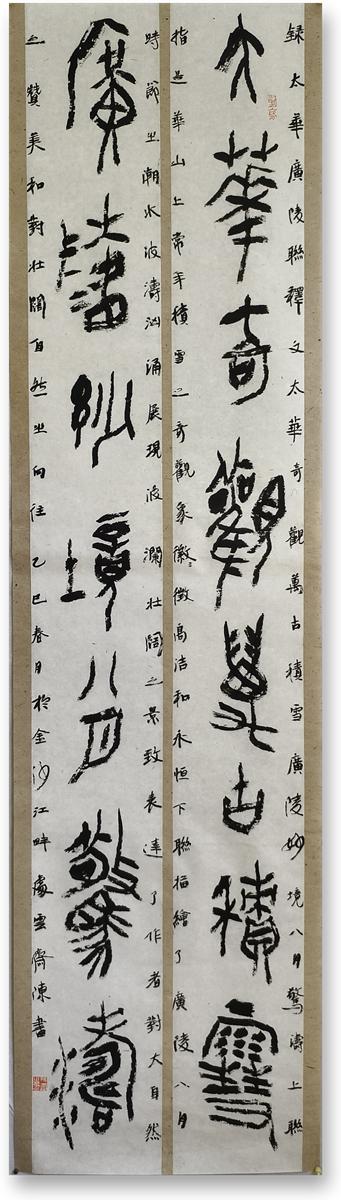 録太華廣陵聯釋文太華奇觀萬古積雪廣陵妙境八月驚濤上聯
大華奇觀萬古積雪
指出華山上常年積雪之奇觀象徽徵高洁和永恒下聯描繪了廣陵八月
時節之潮水波濤汹涌展現波瀾壯闊之景致表達了作者對大自然
廣陵妙境八月驚濤
之贊美和對壯闊自然之向往乙巳春月於金沙江畔雲齋陳書